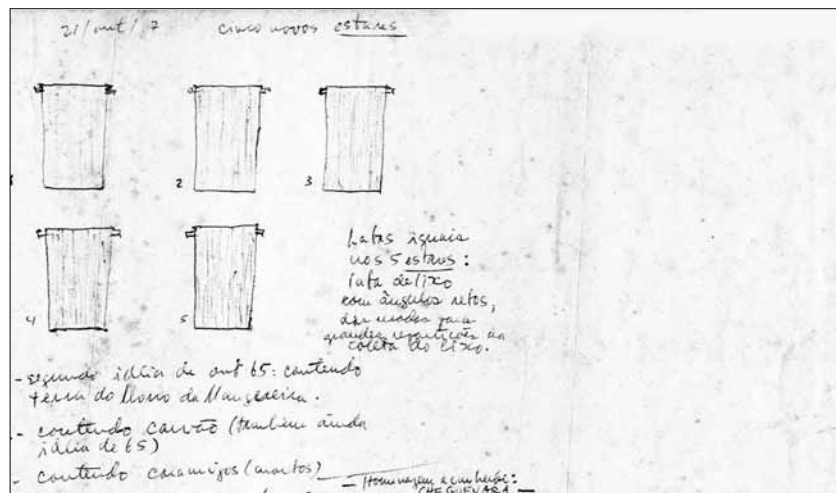 21/out/ 7 cinco novos estares
2
3
4
5
Latas iguais
nos 5 estares:
lata de lixo
com ângulos retos,
das usadas para
grandes repartições na
coleta do lixo.
- segundo idéia de out 65: contendo
terra do Morro da Mangueira.
- contendo carvão (também ainda
idéia de 65)
- contendo caramujos (mortos)
- Homenagem a um herói:
CHE GUEVARA -